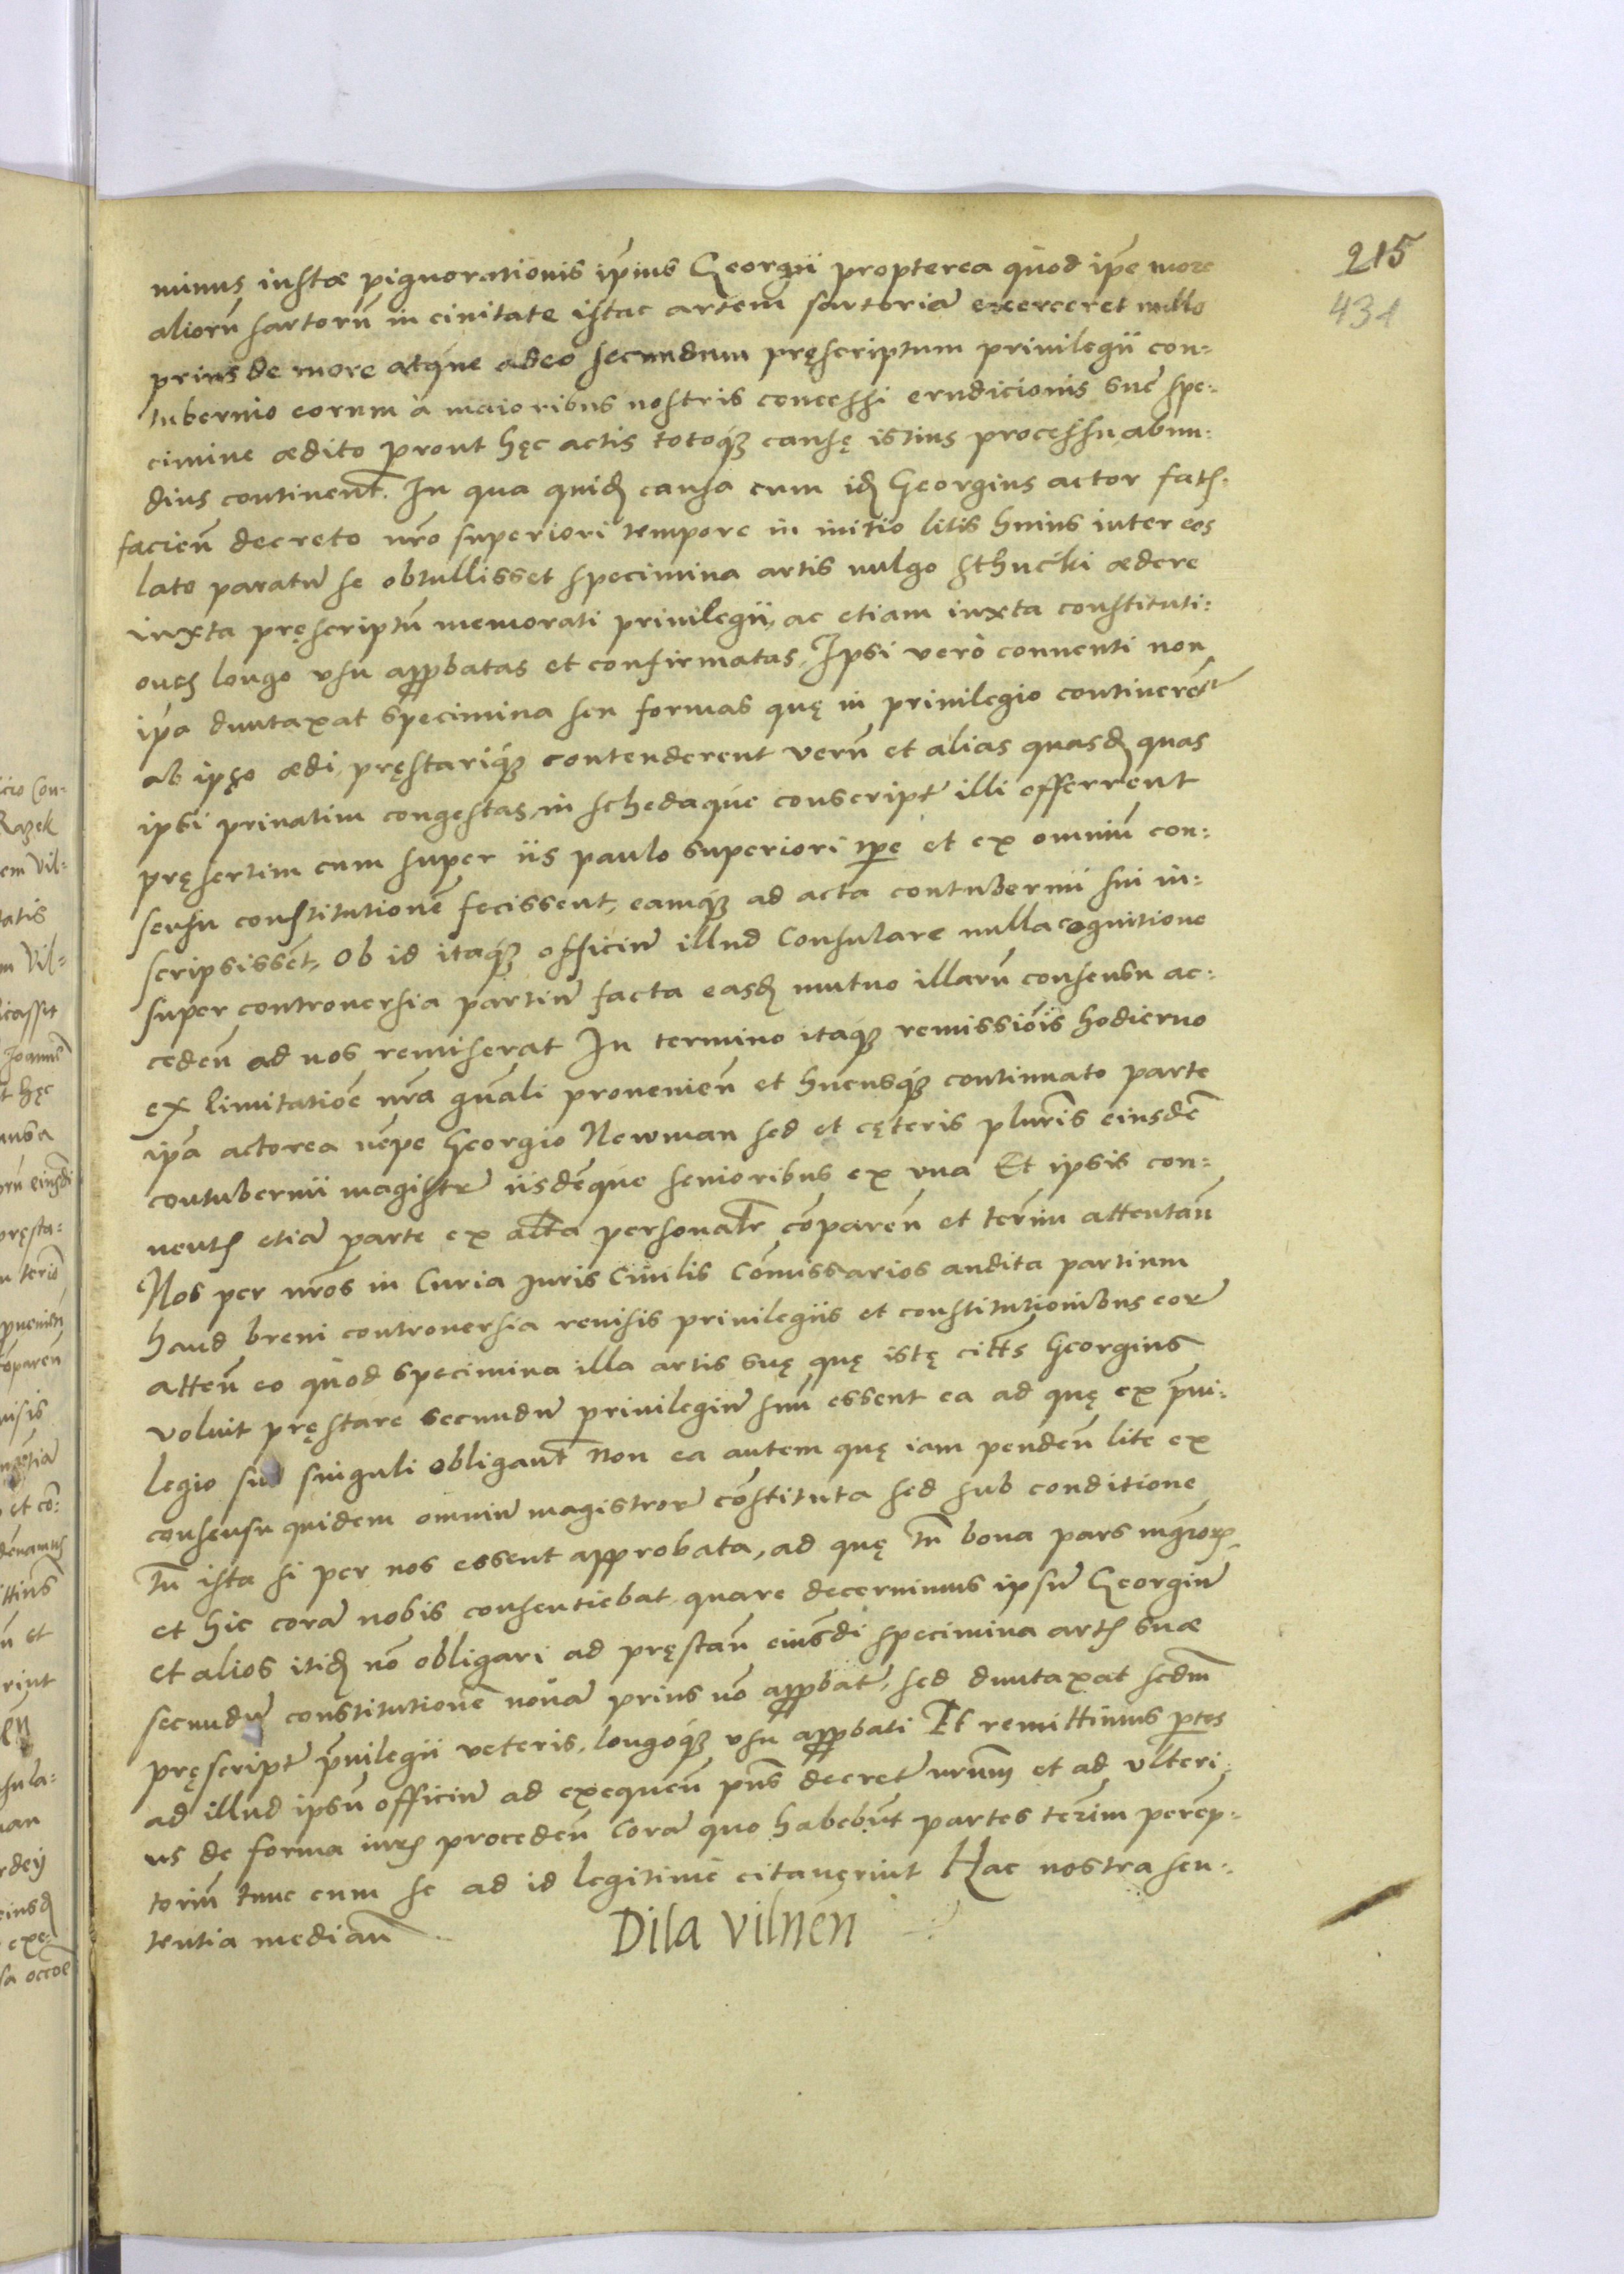 215
431
minus iustæ pignorationis ip̃ius Georgii propterea quòd ip̃e more
aliorũ sartorũ in ciuitate istac artem sartoriã exerceret nullo
prius de more atque adeo secundum pręscriptum priuilegii con-
tubernio eorum à maioribus nostris concessi erudicionis suę spe-
cimine ædito prout hęc actis totoq́ causę istius processu abun-
dius continent̃. In qua quid causa cum id Georgius actor satis-
facieñ decreto nr̃o superiori tempore in initio litis huius inter eos
lato paratũ se obtullisset specimina artis uulgo sthucki ædere
iuxta pręscriptũ memorati priuilegii, ac etiam iuxta constituti-
ones longo vsu approbatas et confirmatas, Ipsi verò conuenti non
ip̃a duntaxat specimina seu formas quę in priuilegio continerẽt̃
ab ipso ædi, pręstariq́ contenderent verũ et alias quasd quas
ipsi priuatim congestas, in schedaque conscript illi offerrent
pręsertim cum super iis paulo superiori tpe et ex omniũ con-
sensu constitutionẽ fecissent, eamq́ ad acta contubernii sui in-
scripsissẽt, Ob id itaq́ officiũ illud Consulare nulla cognitione
super controuersia partiũ facta easd mutuo illarũ consensu ac-
cedeñ ad nos remiserat In termino itaq́ remissiõis hodierno
ex limitatiõe nr̃a gñali prouenieñ et hucusq́ continuato parte
ip̃a actorea nẽpe Georgio Newman sed et cęteris plurĩs eiusdẽ
contubernii magistr̃ iisdẽque senioribus ex vna Et ipsis con-
uentis etiã parte ex altã personalr̃ cõpareñ et ter̃mi attentañ
Nos per nr̃os in Curia Iuris Ciuilis Cõmissarios audita partium
haud breui controuersia reuisis priuilegiis et constitutionibus eor̃
atteñ eo quòd specimina illa artis suę quę istę citt̃s Georgius
voluit pręstare secundũ priuilegiũ suũ essent ea ad quę ex p̃ui-
legio suo singuli obligant̃ Non ea autem quę iam pendeñ lite ex
consensu quidem omniũ magistror̃ cõstituta sed sub conditione
tñ ista si per nos essent approbata, ad quę tñ bona pars mgr̃or
et hic corã nobis consentiebat quare decernimus ipsũ Georgiũ
et alios itid nõ obligari ad pręstañ eiusdi specimina artis suæ
secundũ constitutionẽ nouã prius nõ approbat̃, sed duntaxat scdm̃
pręscript̃ p̃uilegii veteris, longoq́ vsu approbati Et remittimus ptes
ad illud ipsũ officiũ ad exequeñ pñs decret̃ nrũm et ad vlteri-
us de forma iuris procedeñ Corã quo habebũt partes ter̃im perẽp-
toriũ tunc cum se ad id legitimè citauęrint Hac nostra sen-
tentia mediañ
Dila Vilneñ